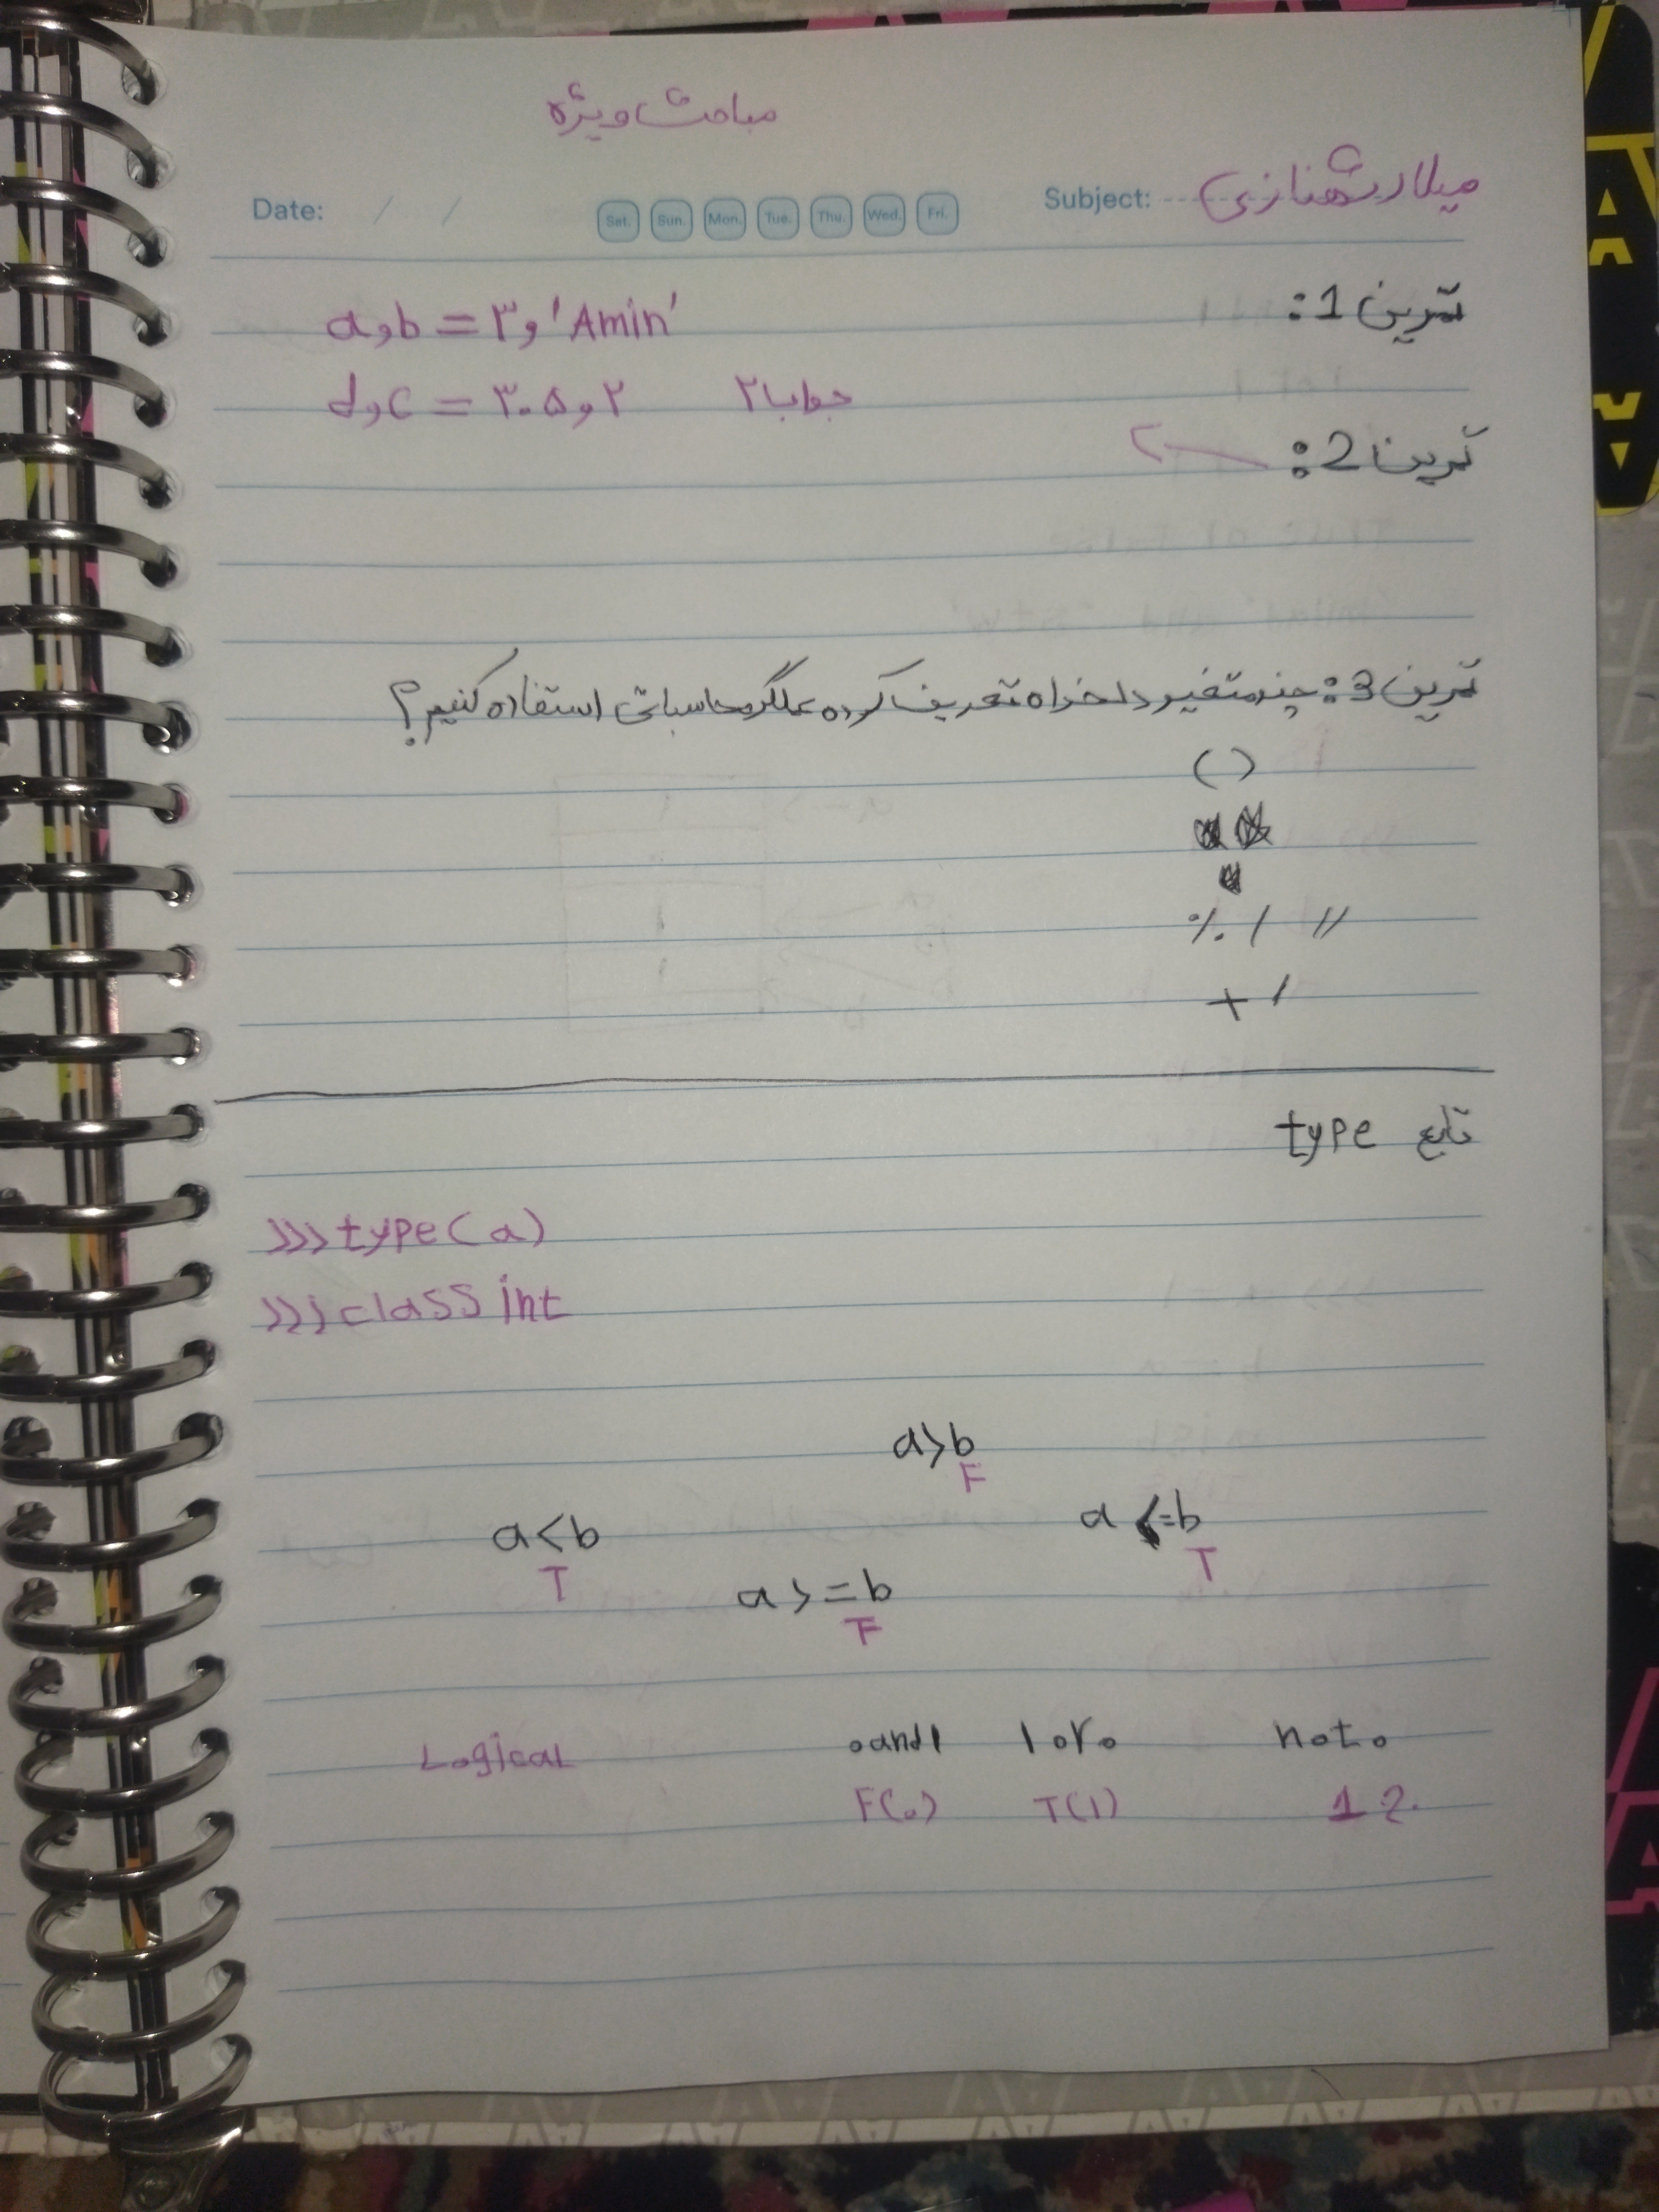 مباحث ویژه
Date: / / Sat. Sun. Mon. Tue. Thu. Wed. Fri. Subject: میلاد شهنازی
تمرین 1:
a و b = ۳ و 'Amin'
d و c = ۳.۵ و ۲ جواب ۲
تمرین 2:
تمرین 3: چند متغیر دلخواه تعریف کرده عملگر محاسباتی استفاده کنیم؟
( )
% / //
+ -
تابع type
>>> type(a)
>>> class int
a>b
F
a<b a <=b
T T
a >=b
F
Logical 0 and 1 1 or 0 not 0
F(0) T(1) 1